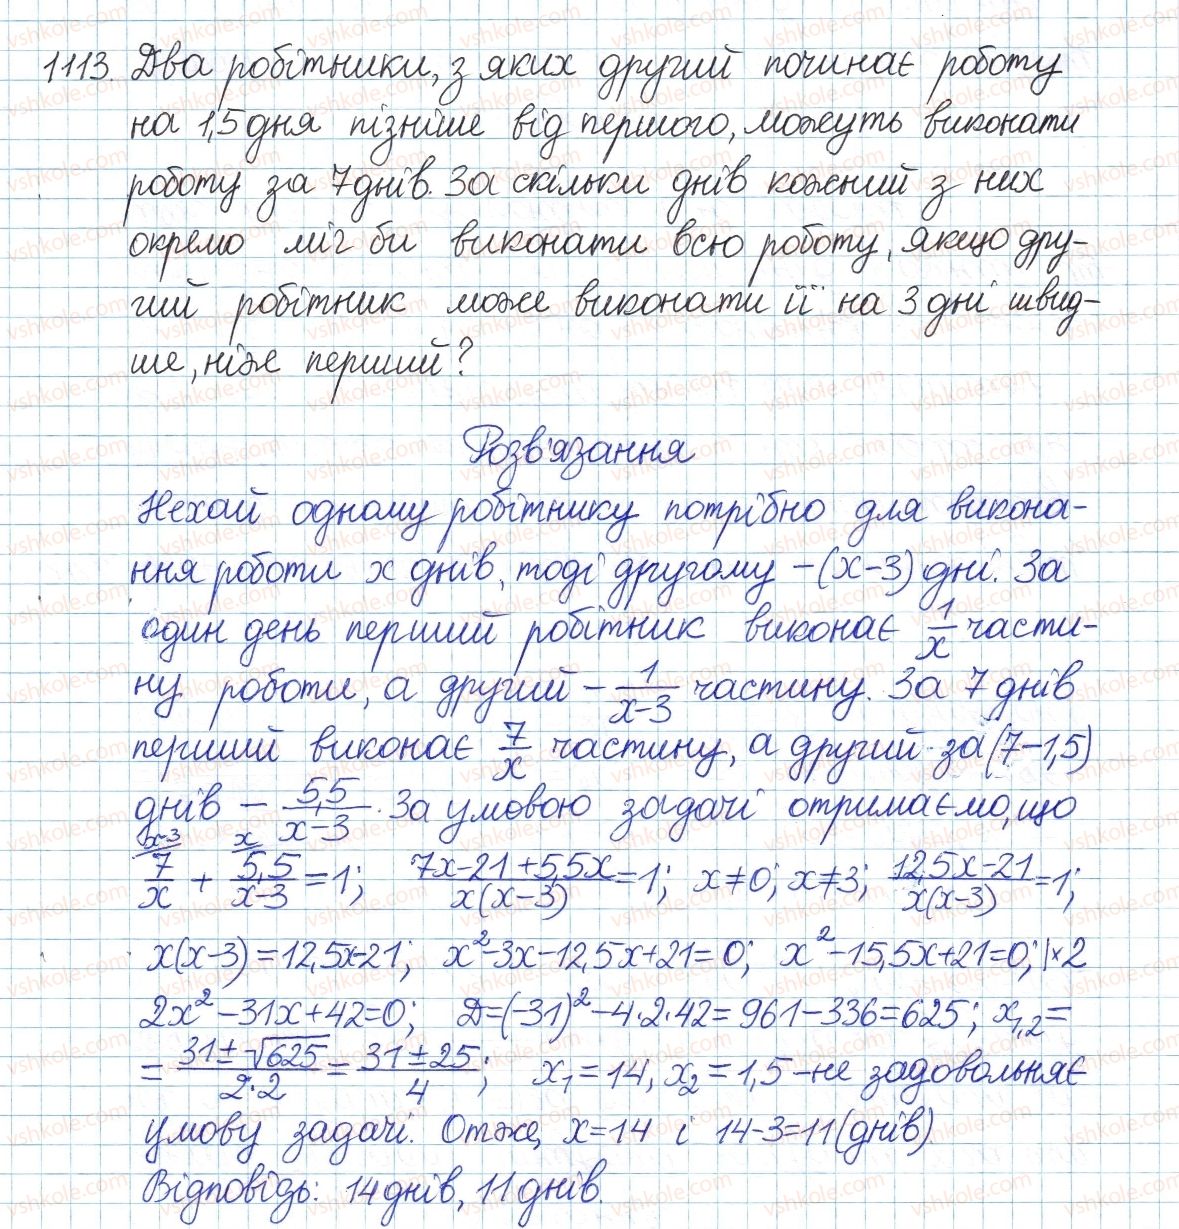 1113. Два робітники, з яких другий починає роботу
на 1,5 дня пізніше від першого, можуть виконати
роботу за 7 днів. За скільки днів кожний з них
окремо міг би виконати всю роботу, якщо дру-
гий робітник може виконати її на 3 дні швид-
ше, ніж перший?
Розв'язання
Нехай одному робітнику потрібно для викона-
ння роботи x днів, тоді другому – (x-3) дні. За
один день перший робітник виконає 1/x части-
ну роботи, а другий – 1/(x-3) частину. За 7 днів
перший виконає 7/x частину, а другий за (7-1,5)
днів – 5,5/(x-3). За умовою задачі отримаємо, що
x-3 x
7/x + 5,5/(x-3) = 1; (7x-21+5,5x)/(x(x-3)) = 1; x≠0; x≠3; (12,5x-21)/(x(x-3)) = 1;
x(x-3) = 12,5x-21; x²-3x-12,5x+21=0; x²-15,5x+21=0; |×2
2x²-31x+42=0; D=(-31)²-4·2·42=961-336=625; x₁,₂=
= (31±√625)/(2·2) = (31±25)/4; x₁=14, x₂=1,5 – не задовольняє
умову задачі. Отже, x=14 і 14-3=11 (днів)
Відповідь: 14 днів, 11 днів.
vshkole.com